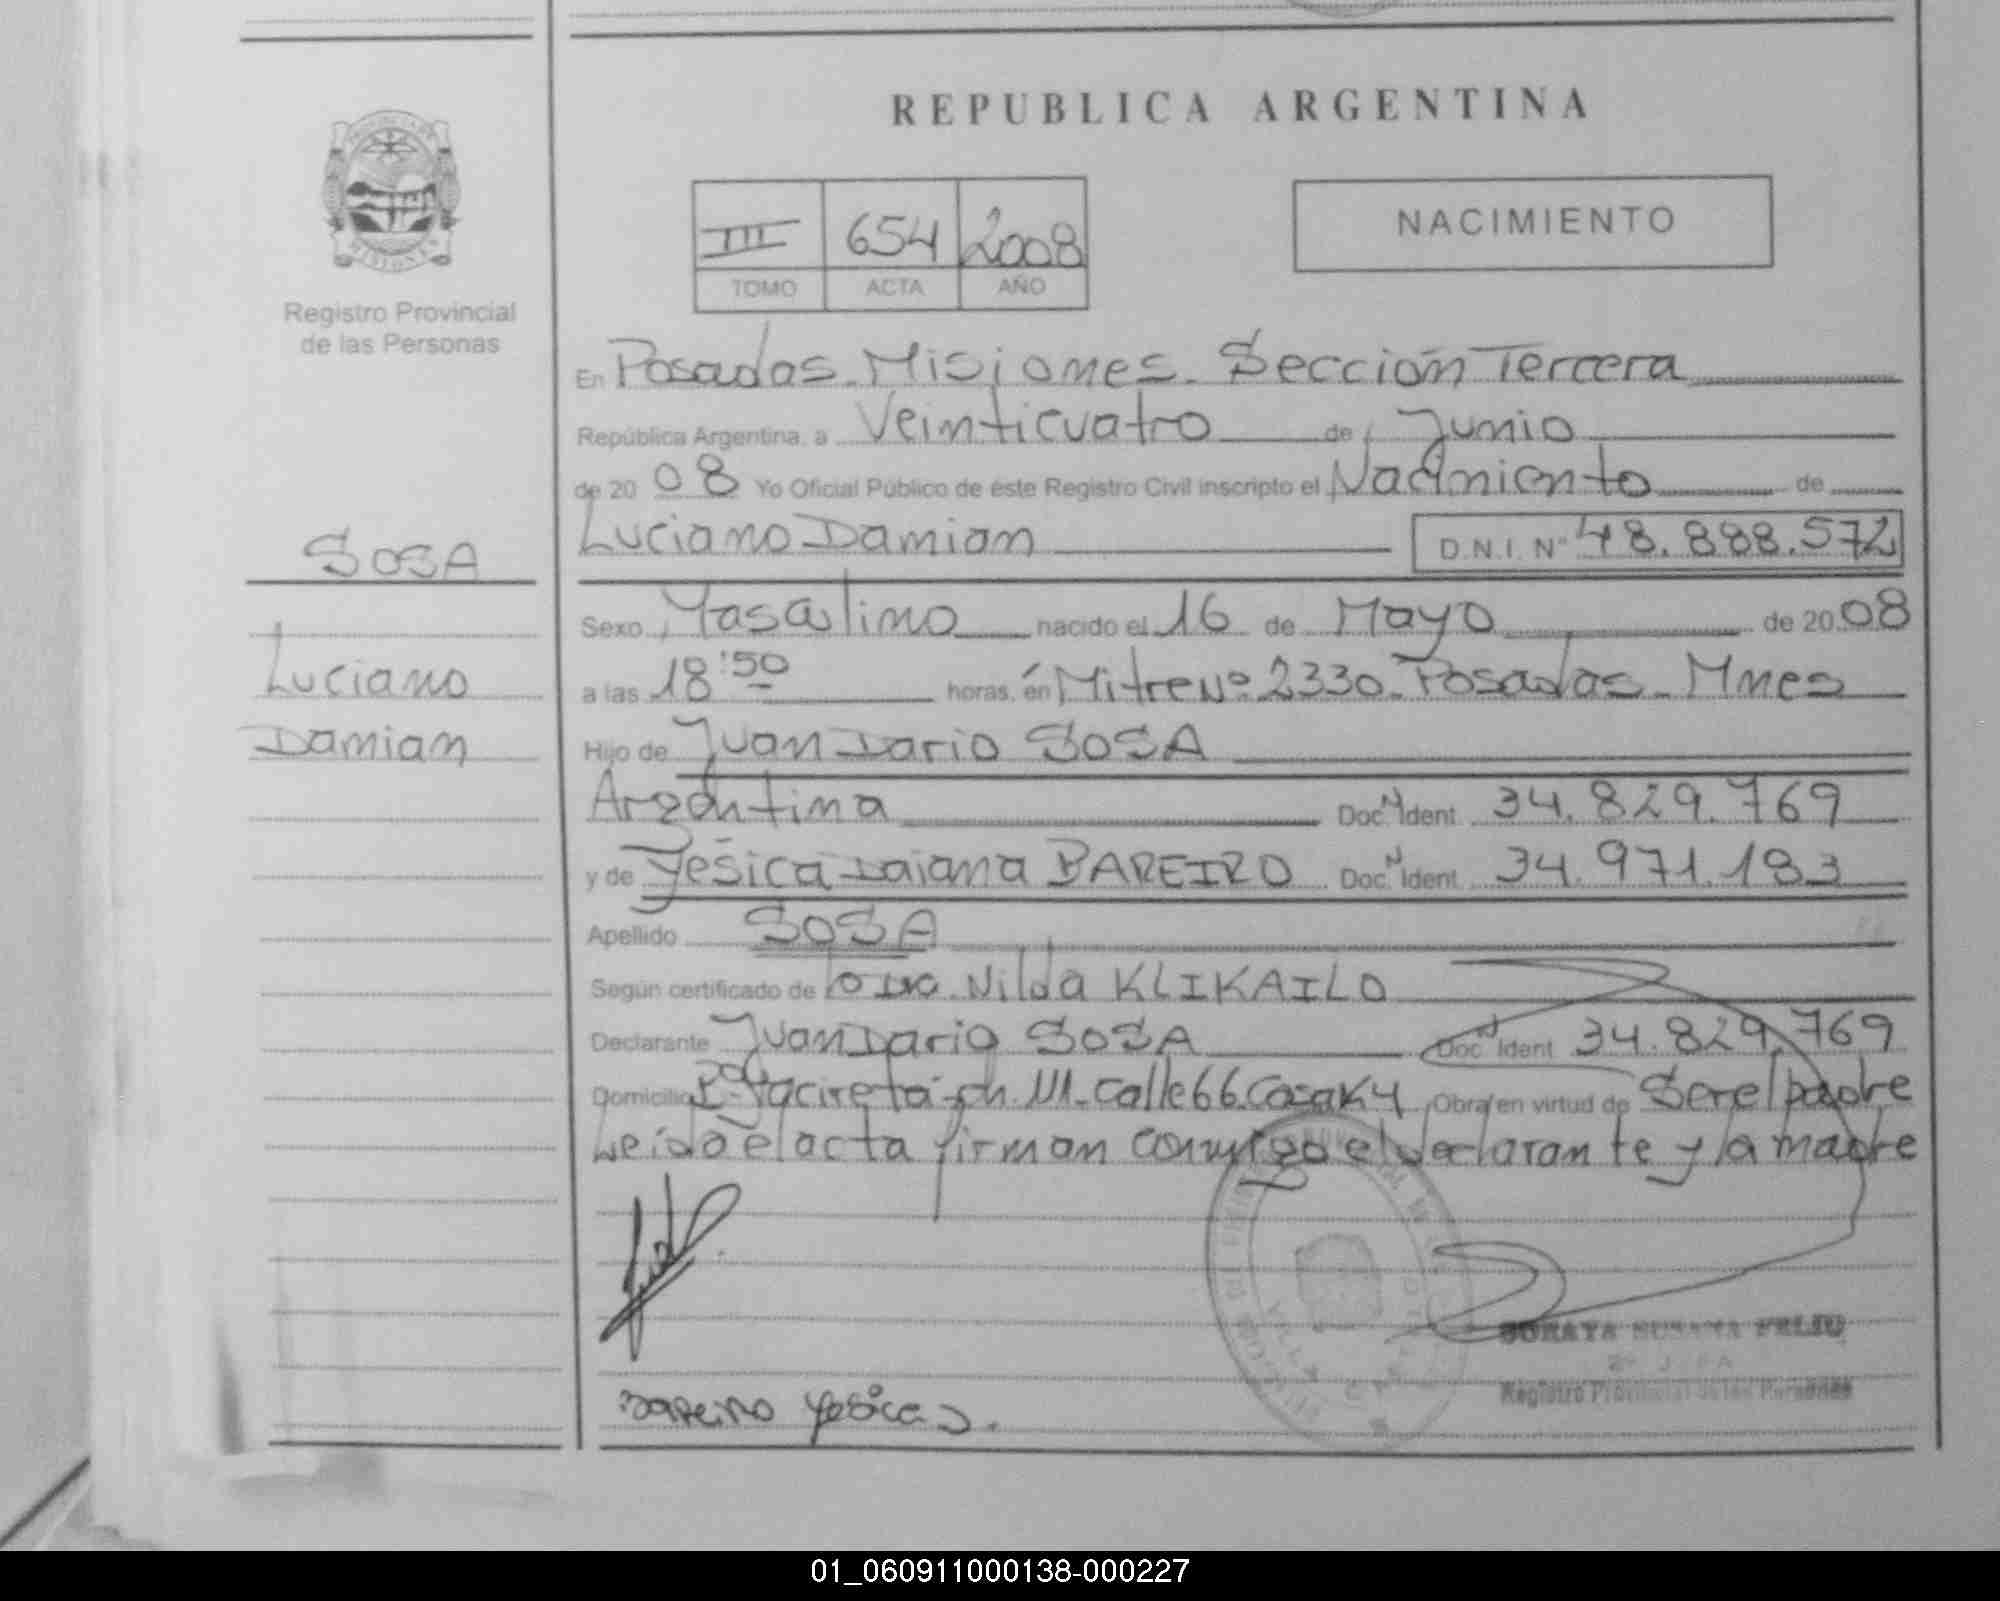 REPUBLICA ARGENTINA
III 654 2008
TOMO ACTA AÑO
NACIMIENTO
Registro Provincial
de las Personas
SOSA
Luciano
Damian
En Posadas. Misiones. Sección Tercera
República Argentina, a Veinticuatro de Junio
de 20 08 Yo Oficial Público de éste Registro Civil inscripto el Nacimiento de
Luciano Damian D.N.I. Nº 48.888.572
Sexo Masculino nacido el 16 de Mayo de 20 08
a las 18:50 horas, en Mitre Nº 2330. Posadas. Mnes
Hijo de Juan Dario SOSA
Argentina Doc. N Ident 34.829.769
y de Yesica Daiana BAREIRO Doc. N Ident 34.971.193
Apellido SOSA
Según certificado de la Dra. Nilda KLIKAILO
Declarante Juan Dario SOSA Doc N Ident 34.829.769
Domicilio Yacireta-ch. 111. Calle 66. Casa K4 Obra en virtud de Ser el padre
Leído el acta firman conmigo el declarante y la madre
SORAYA SUSANA FELIU
Registro Provincial de las Personas
Bareiro Yesica D.
01_060911000138-000227